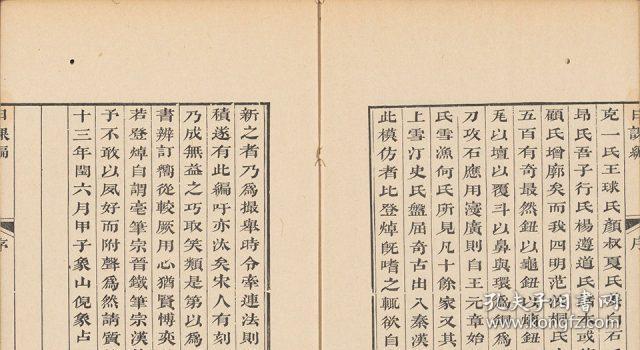 克一氏王球氏顏叔夏氏白石
昂氏吾子行氏楊遵道氏
顧氏增廓矣而我四明范汝桐氏
五百有奇最然鈕以龜鈕以
尾以壇以覆斗以鼻與環
刀攻石應用寖廣則自王元章始
氏雪漁何氏所見凡十餘家又其
上雪汀史氏盤屈奇古出入秦漢
此模仿者比登焯旣嗜之輒欲自
新之者乃爲撮卑時令牽連法則
積遂有此編吁亦汰矣宋人有刻
乃成無益之巧取笑類是第以爲
書辨訂衢從較厥用心猶賢博奕
若登焯自謂毫筆宗晉鐵筆宗漢
予不敢以夙好而附聲爲然請質
十三年閏六月甲子象山倪象占
日課編
序
日課編
序
孔夫子旧书网
www.kongfz.com